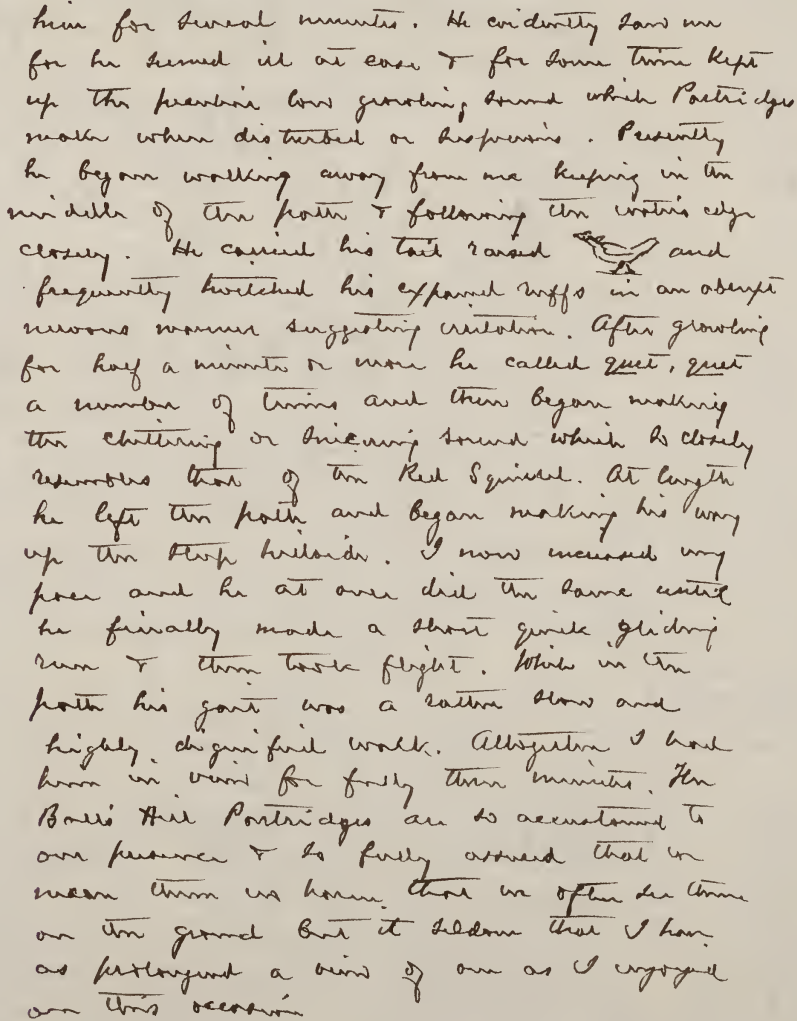 him for several minutes. He evidently saw me
for he seemed ill at ease & for some time kept
up the peculiar low growling sound which Partridges
make when disturbed or suspicious. Presently
he began walking away from me keeping in the
middle of the path & following the water's edge
closely. He carried his tail raised and
frequently twitched his expanded ruffs in an abrupt
nervous manner suggesting irritation. After growling
for half a minute or more he called quet, quet
a number of times and then began making
the chittering or snickering sound which so closely
resembles that of the Red Squirrel. At length
he left the path and began making his way
up the steep hillside. I now increased my
pace and he at once did the same until
he finally made a short quick gliding
run & then took flight. While in the
path his gait was a rather slow and
highly dignified walk. Altogether I had
him in view for fully three minutes. The
Ball's Hill Partridges are so accustomed to
our presence & so fully assured that we
mean them no harm that we often see them
on the ground but it seldom that I have
as prolonged a view of one as I enjoyed
on this occasion